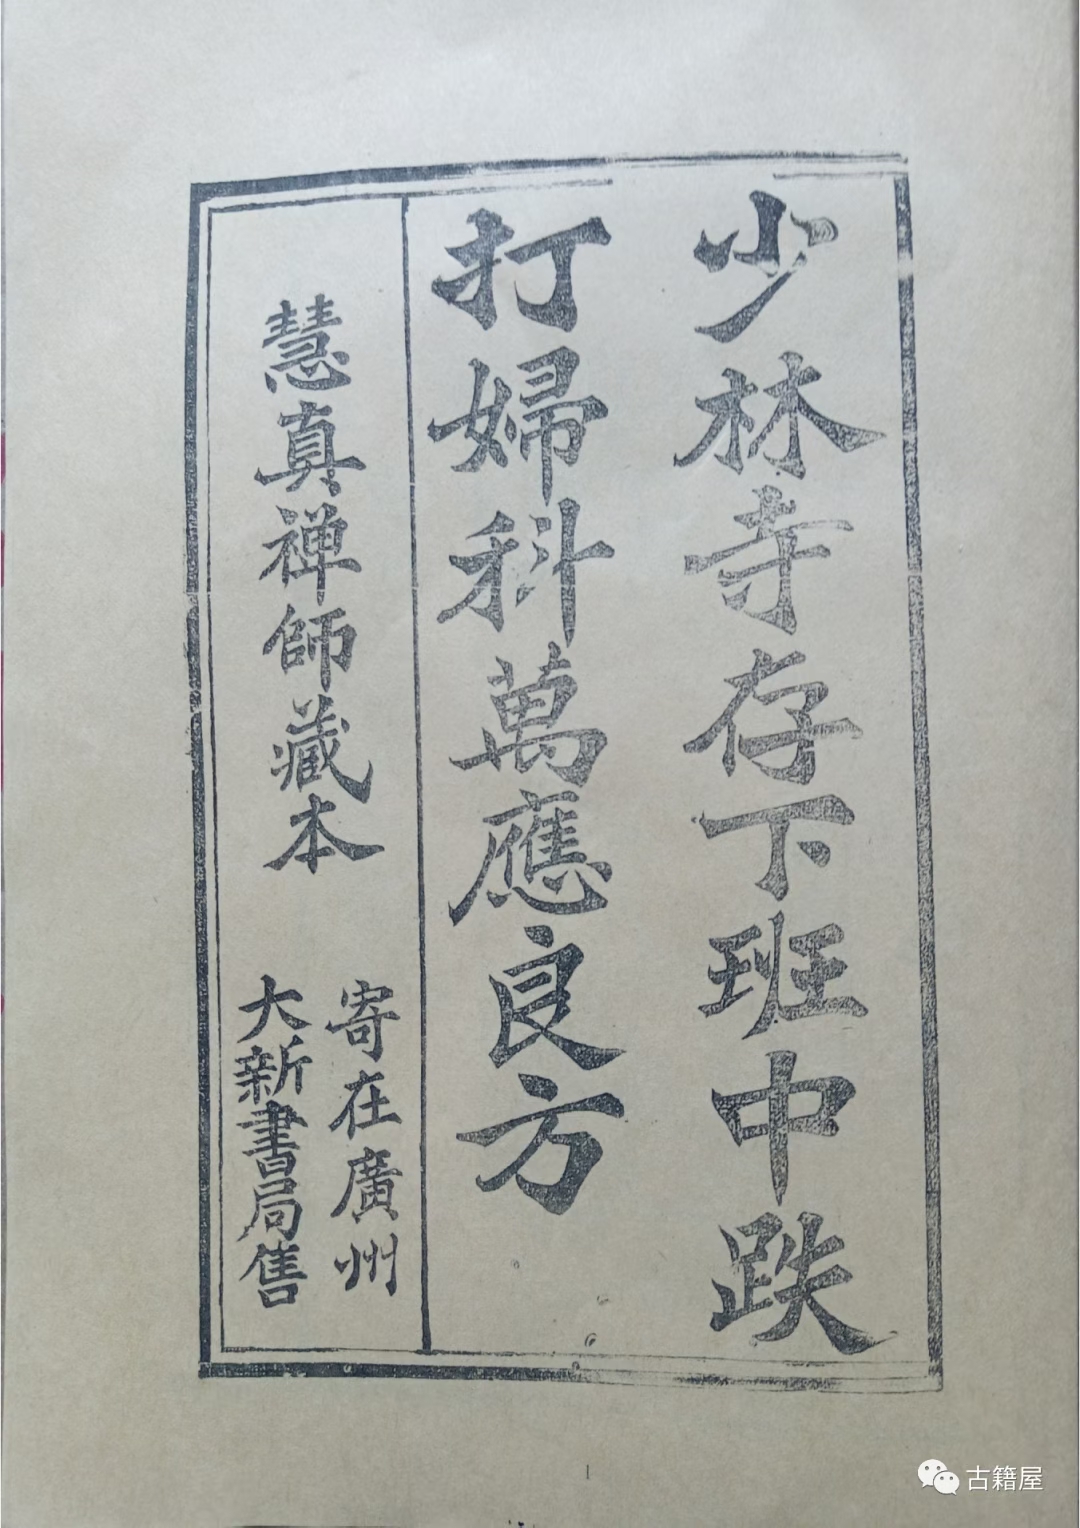 少林寺存下班中跌
打婦科萬應良方
慧真禅師藏本
寄在廣州
大新書局售
1
古籍屋